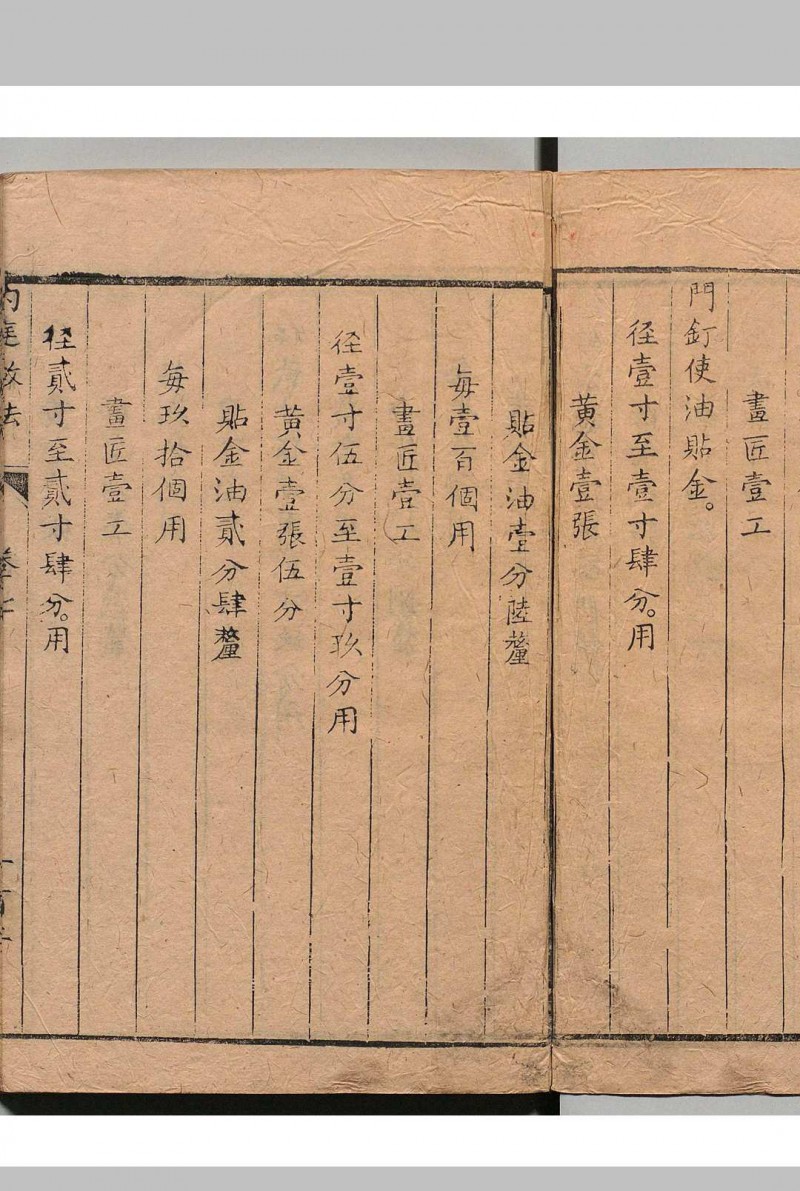 畫匠壹工
門釘使油貼金。
径壹寸至壹寸肆分。用
黄金壹張
貼金油壹分陸釐
每壹百個用
畫匠壹工
径壹寸伍分至壹寸玖分用
黄金壹張伍分
貼金油貳分肆釐
每玖拾個用
畫匠壹工
径貳寸至貳寸肆分。用